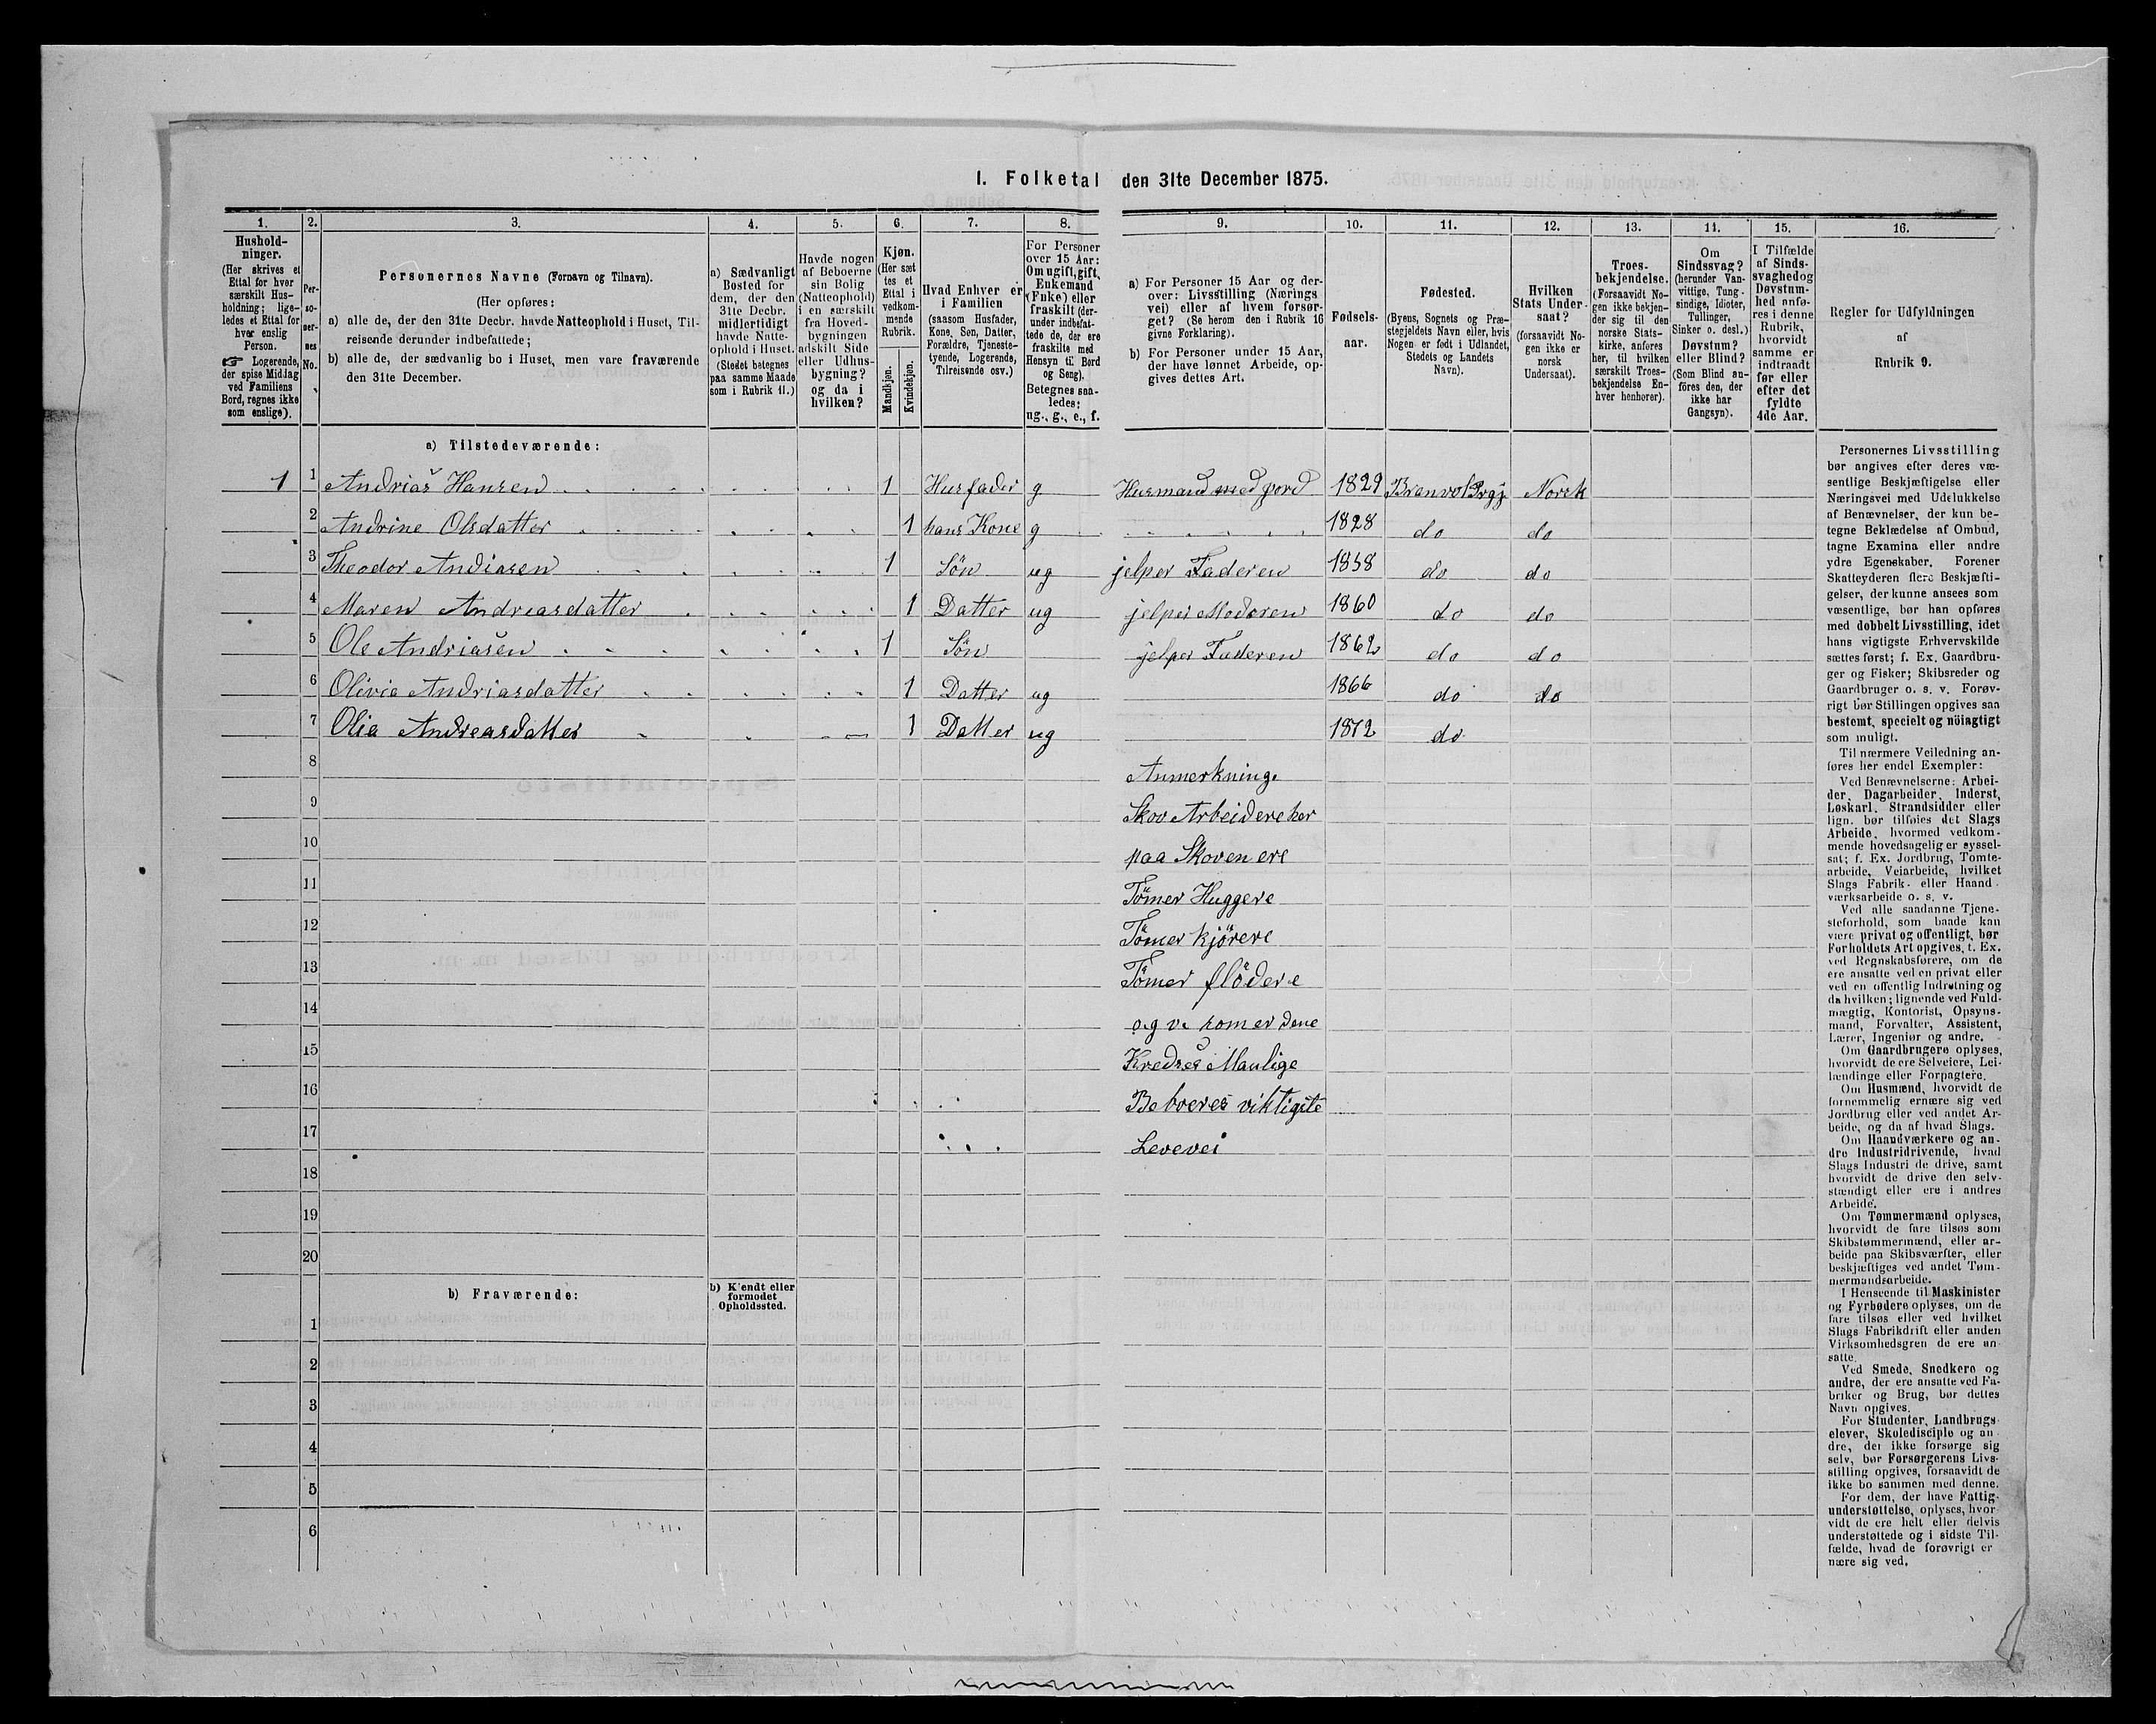 I. Folketal den 31te December 1875.
1. 2. 3. 4. 5. 6. 7. 8. 9. 10. 11. 12. 13. 14. 15. 16.
Hushold-
ninger.
(Her skrives et
Ettal for hver
særskilt Hus-
holdning; lige-
ledes et Ettal for
hver enslig
Person.
☞ Logerende,
der spise Middag
ved Familiens
Bord, regnes ikke
som enslige).
Per-
so-
ner-
nes
No.
Personernes Navne (Fornavn og Tilnavn).
(Her opføres:
a) alle de, der den 31te Decbr. havde Natteophold i Huset, Til-
reisende derunder indbefattede;
b) alle de, der sædvanlig bo i Huset, men vare fraværende
den 31te December.
a) Sædvanligt
Bosted for
dem, der den
31te Decbr.
midlertidigt
havde Natte-
ophold i Huset.
(Stedet betegnes
paa samme Maade
som i Rubrik 11.)
Havde nogen
af Beboerne
sin Bolig
(Natteophold)
i en særskilt
fra Hoved-
bygningen
adskilt Side
eller Udhus-
bygning?
og da i
hvilken?
Kjøn.
(Her sæt
tes et
Ettal i
vedkom-
mende
Rubrik.
Mandkjøn.
Kvindekjøn.
Hvad Enhver er
i Familien
(saasom Husfader,
Kone, Søn, Datter,
Forældre, Tjeneste-
tyende, Logerende,
Tilreisende osv.)
For Personer
over 15 Aar:
Om ugift, gift,
Enkemand
(Enke) eller
fraskilt (der-
under indbefat-
tede de, der ere
fraskilte med
Hensyn til Bord
og Seng).
Betegnes saa-
ledes:
ug., g., e., f.
a) For Personer 15 Aar og der-
over: Livsstilling (Nærings
vei) eller af hvem forsør-
get? (Se herom den i Rubrik 16
givne Forklaring).
b) For Personer under 15 Aar,
der have lønnet Arbeide, op-
gives dettes Art.
Fødsels-
aar.
Fødested.
(Byens, Sognets og Præ-
stegjeldets Navn eller, hvis
Nogen er født i Udlandet,
Stedets og Landets
Navn).
Hvilken
Stats Under-
saat?
(forsaavidt No-
gen ikke er
norsk
Undersaat).
Troes-
bekjendelse.
(Forsaavidt No-
gen ikke bekjen-
der sig til den
norske Stats-
kirke, anføres
her, til hvilken
særskilt Troes-
bekjendelse En-
hver henhører).
Om
Sindssvag?
(herunder Van-
vittige, Tung-
sindige, Idioter,
Tullinger,
Sinker o. desl.)
Døvstum?
eller Blind?
(Som Blind an-
føres den, der
ikke har
Gangsyn).
I Tilfælde
af Sinds-
svaghed og
Døvstum-
hed anfø-
res i denne
Rubrik,
hvorvidt
samme er
indtraadt
før eller
efter det
fyldte
4de Aar.
Regler for Udfyldningen
af
Rubrik 9.
a) Tilstedeværende:
1 1 Andrias Hansen 1 Husfader g Husmand med jord 1829 Branvol Prgj Norsk
2 Andrine Olsdatter 1 hans Kone g 1828 do do
3 Theodor Andiasen 1 Sön ug jelper Faderen 1858 do do
4 Maren Andreasdatter 1 Datter ug jelper Moderen 1860 do do
5 Ole Andriasen 1 Sön jelper Faderen 1862 do do
6 Olivia Andriasdatter 1 Datter ug 1866 do do
7 Olia Andreasdatter 1 Datter ug 1872 do
8 Anmerkning.
9 Skov Arbeidere her
10 paa Skoven ere
11 Tömer Huggere
12 Tömer kjörere
13 Tömer flödere
14 og ve kom er dene
15 Kredses Manlige
16 Beboeres viktigste
17 Levevei
18
19
20
b) Fraværende:
b) Kjendt eller
formodet
Opholdssted.
1
2
3
4
5
6
Personernes Livsstilling
bør angives efter deres væ-
sentlige Beskjæftigelse eller
Næringsvei med Udelukkelse
af Benævnelser, der kun be-
tegne Beklædelse af Ombud,
tagne Examina eller andre
ydre Egenskaber. Forener
Skatteyderen flere Beskjæfti-
gelser, der kunne ansees som
væsentlige, bør han opføres
med dobbelt Livsstilling, idet
hans vigtigste Erhvervskilde
sættes først; f. Ex. Gaardbru-
ger og Fisker; Skibsreder og
Gaardbruger o. s. v. Forøv-
rigt bør Stillingen opgives saa
bestemt, specielt og nöiagtigt
som muligt.
Til nærmere Veiledning an-
føres her endel Exempler:
Ved Benævnelserne: Arbei-
der, Dagarbeider, Inderst,
Løskarl, Strandsidder eller
lign. bør tilføies det Slags
Arbeide, hvormed vedkom-
mende hovedsagelig er syssel-
sat; f. Ex. Jordbrug, Tomte-
arbeide, Veiarbeide, hvilket
Slags Fabrik- eller Haand-
værksarbeide o. s. v.
Ved alle saadanne Tjene-
steforhold, som baade kan
være privat og offentligt, bør
Forholdets Art opgives, t. Ex.
ved Regnskabsførere, om de
ere ansatte ved en privat eller
ved en offentlig Indretning og
da hvilken; lignende ved Fuld-
mægtig, Kontorist, Opsyns-
mand, Forvalter, Assistent,
Lærer, Ingeniør og andre.
Om Gaardbrugere oplyses,
hvorvidt de ere Selveiere, Lei-
lændinge eller Forpagtere.
Om Husmænd, hvorvidt de
fornemmelig ernære sig ved
Jordbrug eller ved andet Ar-
beide, og da af hvad Slags.
Om Haandværkere og an-
dre Industridrivende, hvad
Slags Industri de drive, samt
hvorvidt de drive den selv-
stændigt eller ere i andres
Arbeide.
Om Tømmermænd oplyses,
hvorvidt de fare tilsøs som
Skibstømmermænd, eller ar-
beide paa Skibsværfter, eller
beskjæftiges ved andet Tøm-
mermandsarbeide.
I Henseende til Maskinister
og Fyrbødere oplyses, om de
fare tilsøs eller ved hvilket
Slags Fabrikdrift eller anden
Virksomhedsgren de ere an-
satte.
Ved Smede, Snedkere og
andre, der ere ansatte ved Fa-
briker og Brug, bør dettes
Navn opgives.
For Studenter, Landbrugs-
elever, Skoledisciple og an-
dre, der ikke forsørge sig
selv, bør Forsørgerens Livs-
stilling opgives, forsaavidt de
ikke bo sammen med denne.
For dem, der have Fattig-
understøttelse, oplyses, hvor-
vidt de ere helt eller delvis
understøttede og i sidste Til-
fælde, hvad de forøvrigt er-
nære sig ved.